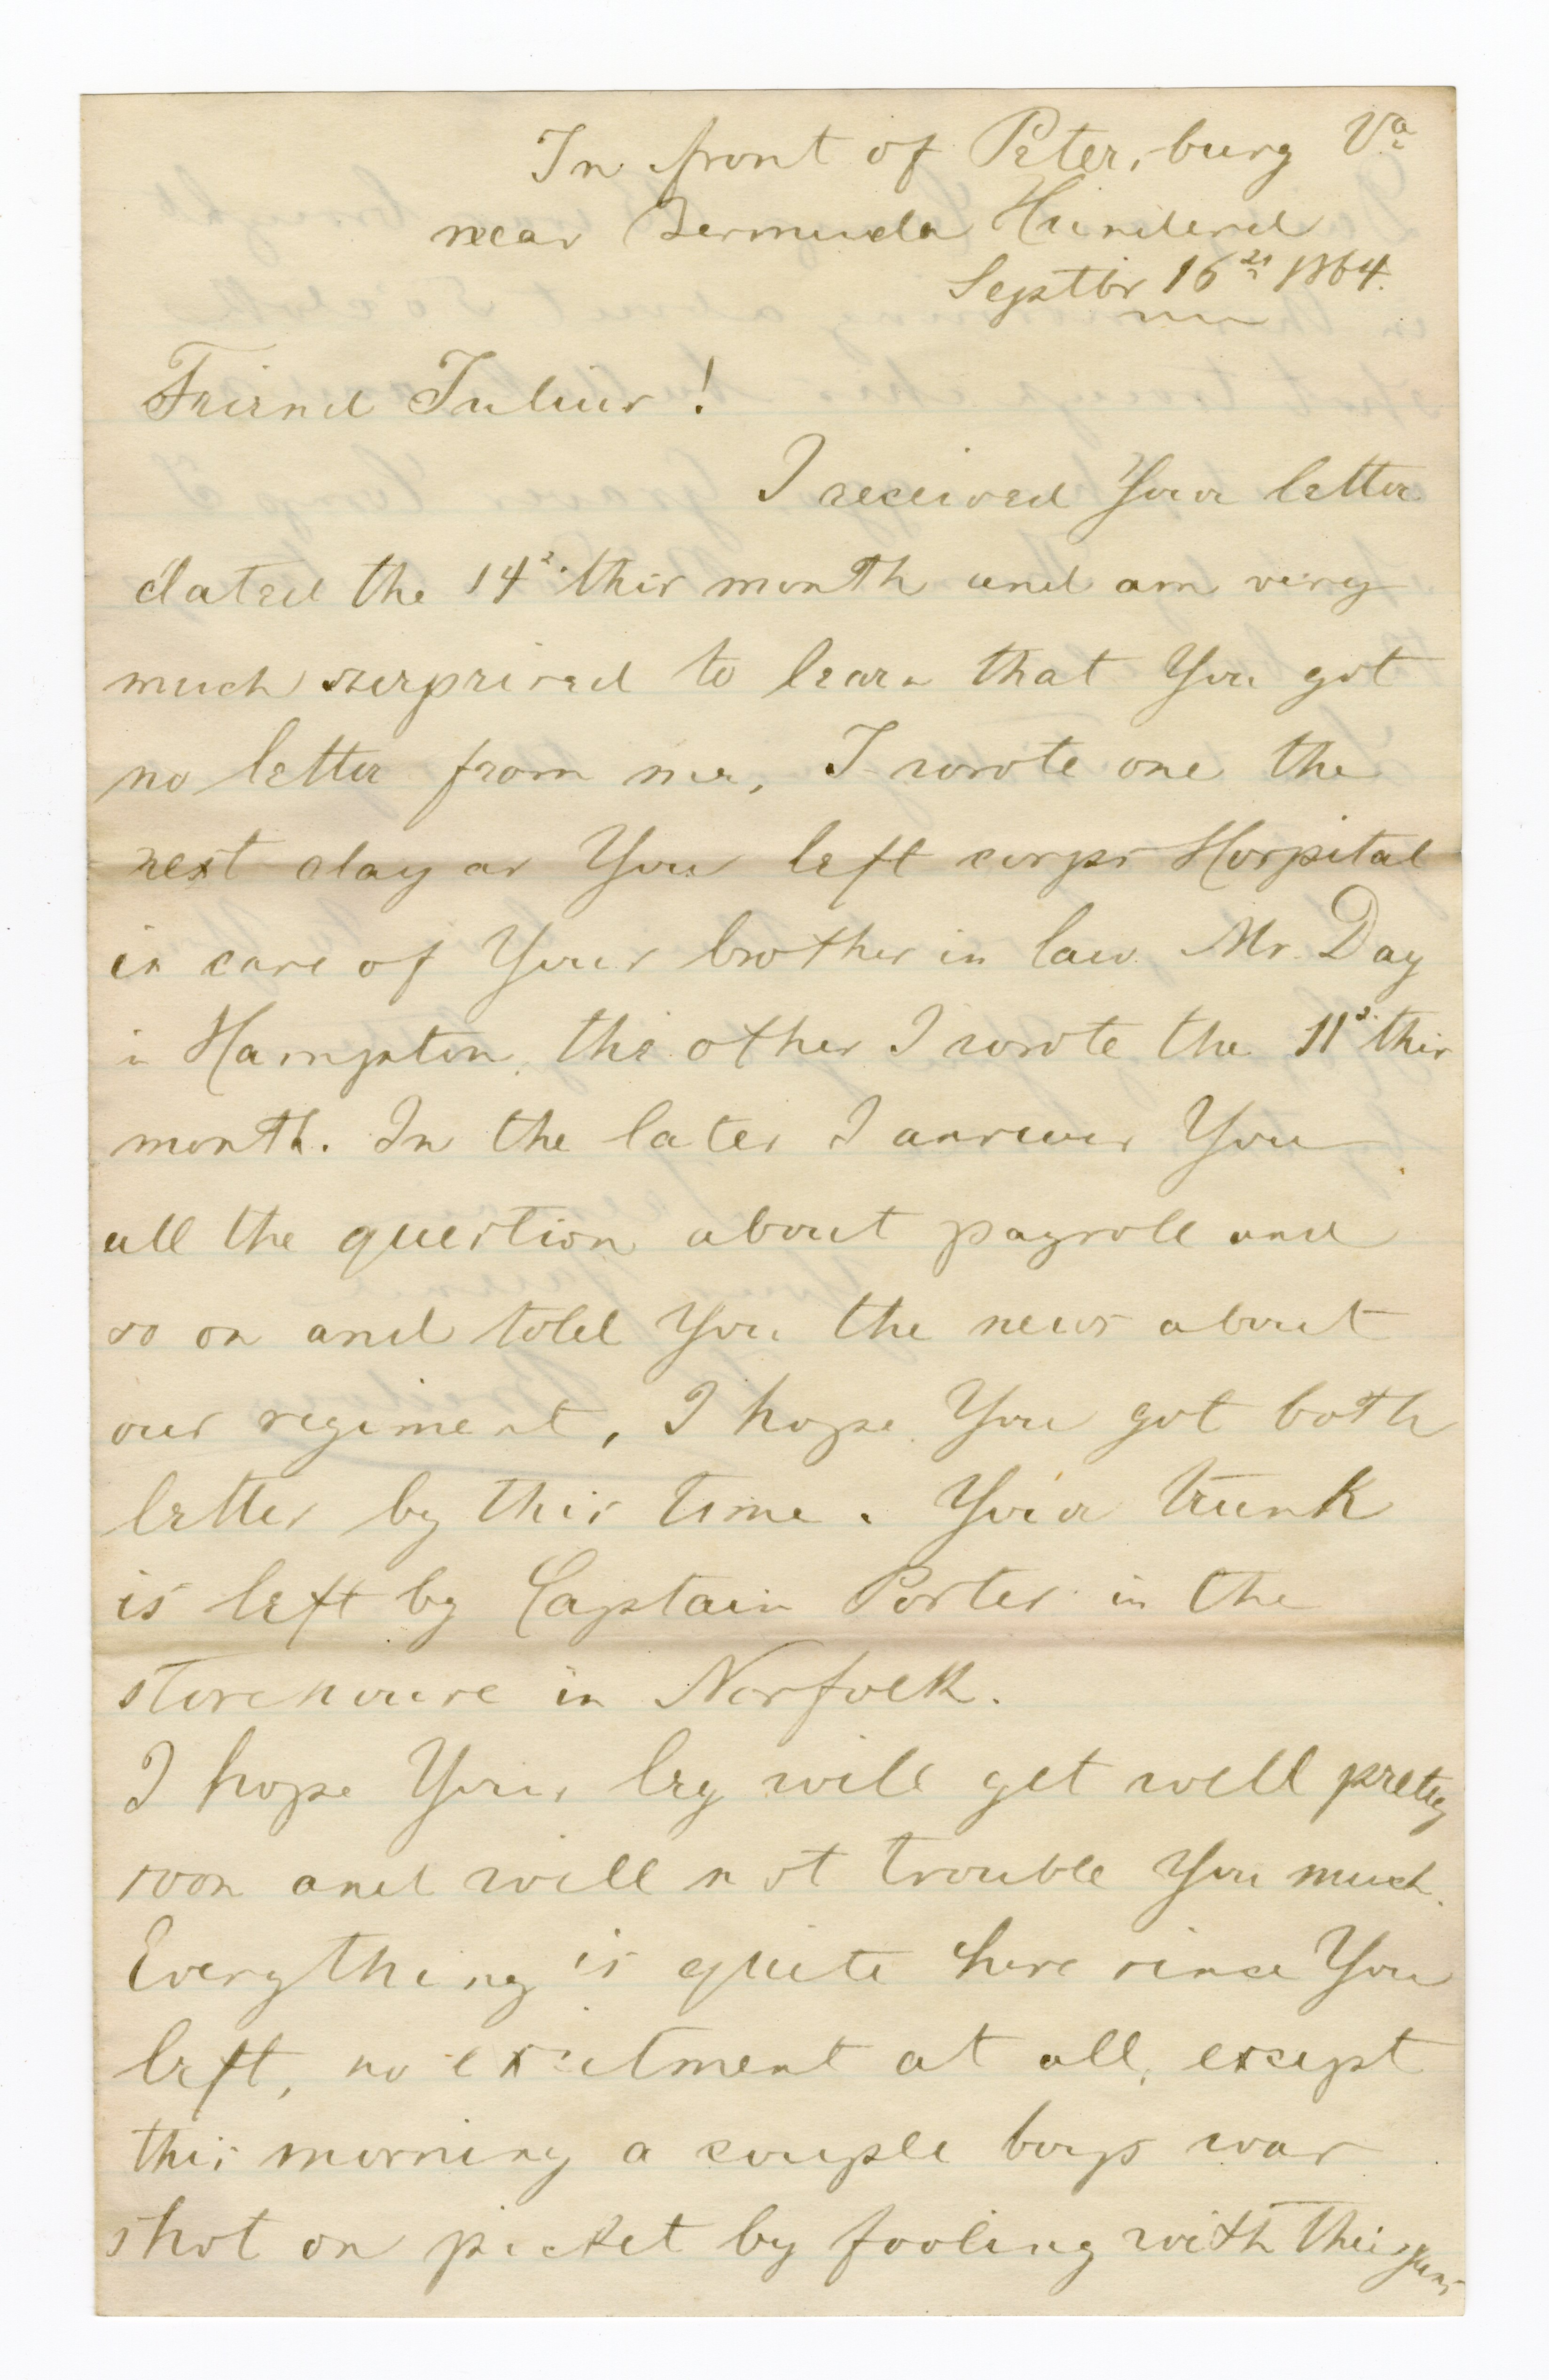 In front of Petersburg Va
near Bermuda Hunderd
Septbr 16 1864.
Friend Julius!
I received Your letter
dated the 14 this month and am very
much surprised to learn that You got
no letter from me, I wrote one the
next day as You left corps Hospital
in care of Your brother in law Mr. Day
i Hampton, the other I wrote the 11 this
month. In the later I answer You
all the question about payroll and
so on and told You the news about
our regiment, I hope You got both
letter by this time. Your trunk
is left by Captain Porter in the
storehouse in Norfolk.
I hope Your leg will get well pretty
soon and will not trouble You much.
Everything is quite here since You
left, no exsitment at all, except
this morning a couple boys was
shot on picket by fooling with their guns